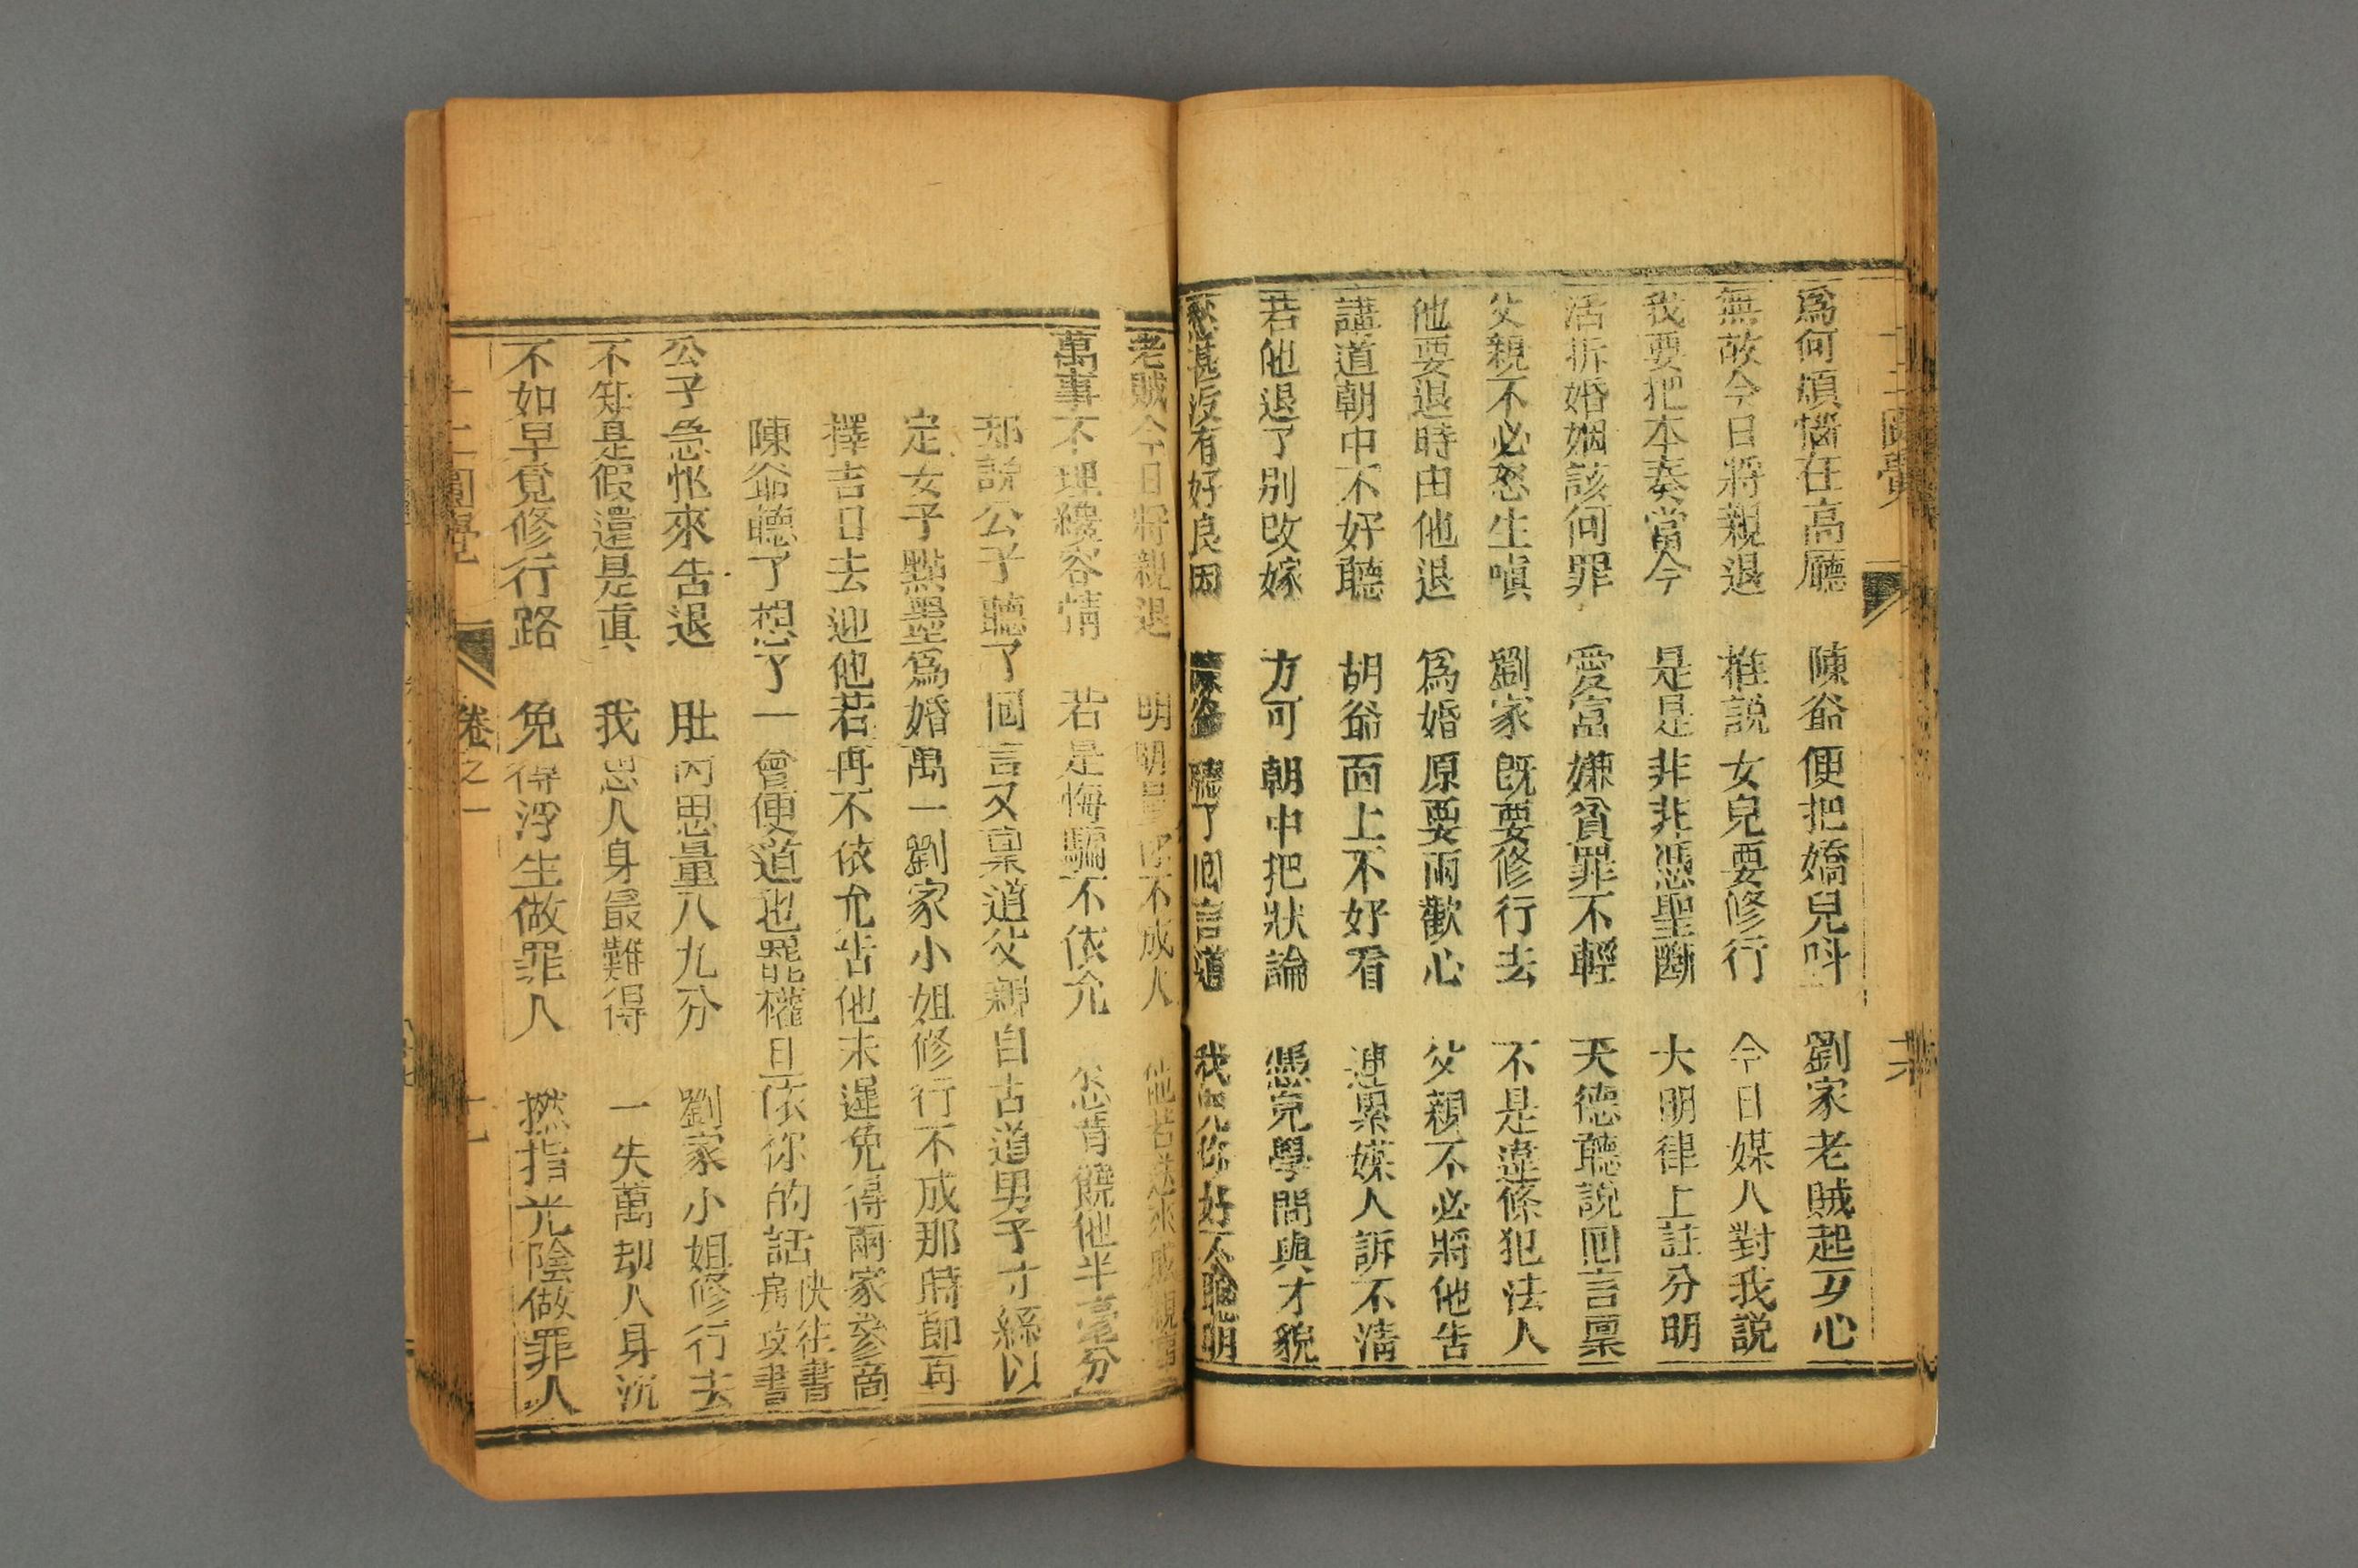 十二圓覺
爲何煩惱在高廳 陳爺便把嬌兒呌 劉家老賊起歹心
無故今日將親退 推説女兒要修行 今日媒人對我説
我要把本奏當今 是是非非憑聖斷 大明律上註分明
活拆婚姻該何罪 愛富嫌貧罪不輕 天德聽説囘言禀
父親不必怒生嗔 劉家既要修行去 不是違條犯法人
他要退時由他退 爲婚原要兩歡心 父親不必將他告
講道朝中不好聽 胡爺面上不好看 連累媒人訴不清
若他退了別改嫁 方可朝中把狀論 憑兒學問與才貌
愁甚沒有好良因 陳爺聽了囘言道 我兒你好不聰明
老賊今日將親退 明明量你不成人 他若送來成親
萬事不理縷容情 若是悔騙不依允 怎肯饒他半毫分
那説公子聽了囘言又禀道父親自古道男子寸絲以
定女子點墨爲婚萬一劉家小姐修行不成那時節再
擇吉日去迎他若再不依允告他未遲免得兩家參商
陳爺聽了想了一會便道也罷權且依你的話快往書房攻書
公子急忙來告退 肚內思量八九分 劉家小姐修行去
不知是假還是眞 我思人身最難得 一失萬刼人身沉
不如早覓修行路 免得浮生做罪人 撚指光陰做罪人
十二圓覺 卷之一